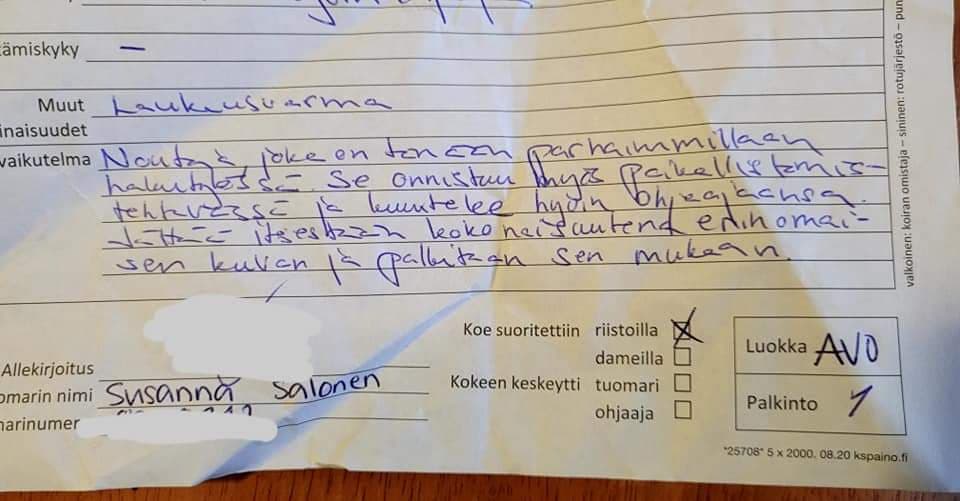 tämiskyky –
Muut Laukausvarma
inaisuudet
vaikutelma Noutaja, joke on tänään parhaimmillaan
hakutyössä. Se onnistuu myös paikallistamis-
tehtävässä ja kuuntelee hyvin ohjaajaansa.
Jättää itsestään kokonaisuutena erinomai-
sen kuvan ja palkitaan sen mukaan.
Koe suoritettiin riistoilla
dameilla
Kokeen keskeytti tuomari
ohjaaja
Luokka AVO
Palkinto 1
Allekirjoitus
omarin nimi Susanna Salonen
narinumer
*25708* 5 x 2000, 08.20 kspaino.fi
valkoinen: koiran omistaja – sininen: rotujärjestö – pun